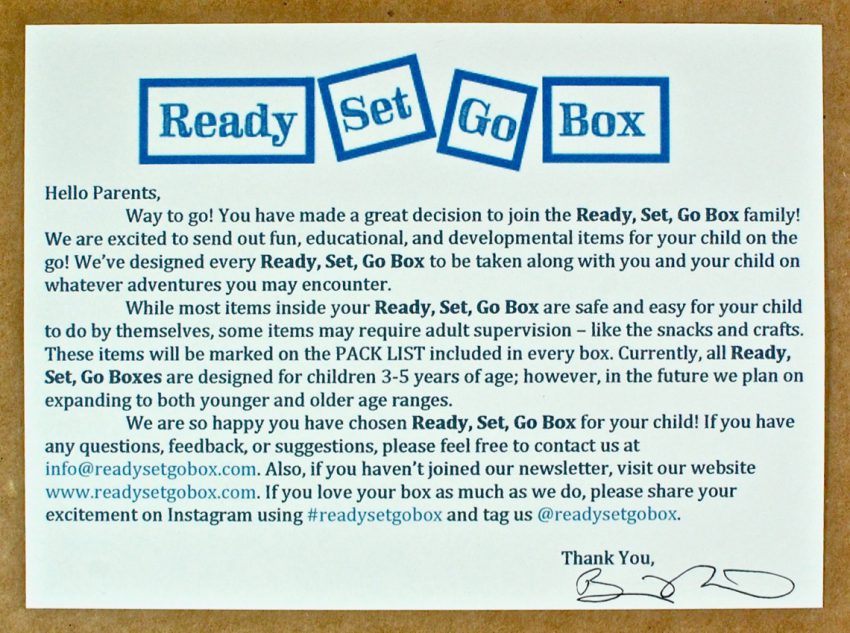 Ready Set Go Box
Hello Parents,
Way to go! You have made a great decision to join the Ready, Set, Go Box family!
We are excited to send out fun, educational, and developmental items for your child on the
go! We've designed every Ready, Set, Go Box to be taken along with you and your child on
whatever adventures you may encounter.
While most items inside your Ready, Set, Go Box are safe and easy for your child
to do by themselves, some items may require adult supervision – like the snacks and crafts.
These items will be marked on the PACK LIST included in every box. Currently, all Ready,
Set, Go Boxes are designed for children 3-5 years of age; however, in the future we plan on
expanding to both younger and older age ranges.
We are so happy you have chosen Ready, Set, Go Box for your child! If you have
any questions, feedback, or suggestions, please feel free to contact us at
info@readysetgobox.com. Also, if you haven't joined our newsletter, visit our website
www.readysetgobox.com. If you love your box as much as we do, please share your
excitement on Instagram using #readysetgobox and tag us @readysetgobox.
Thank You,